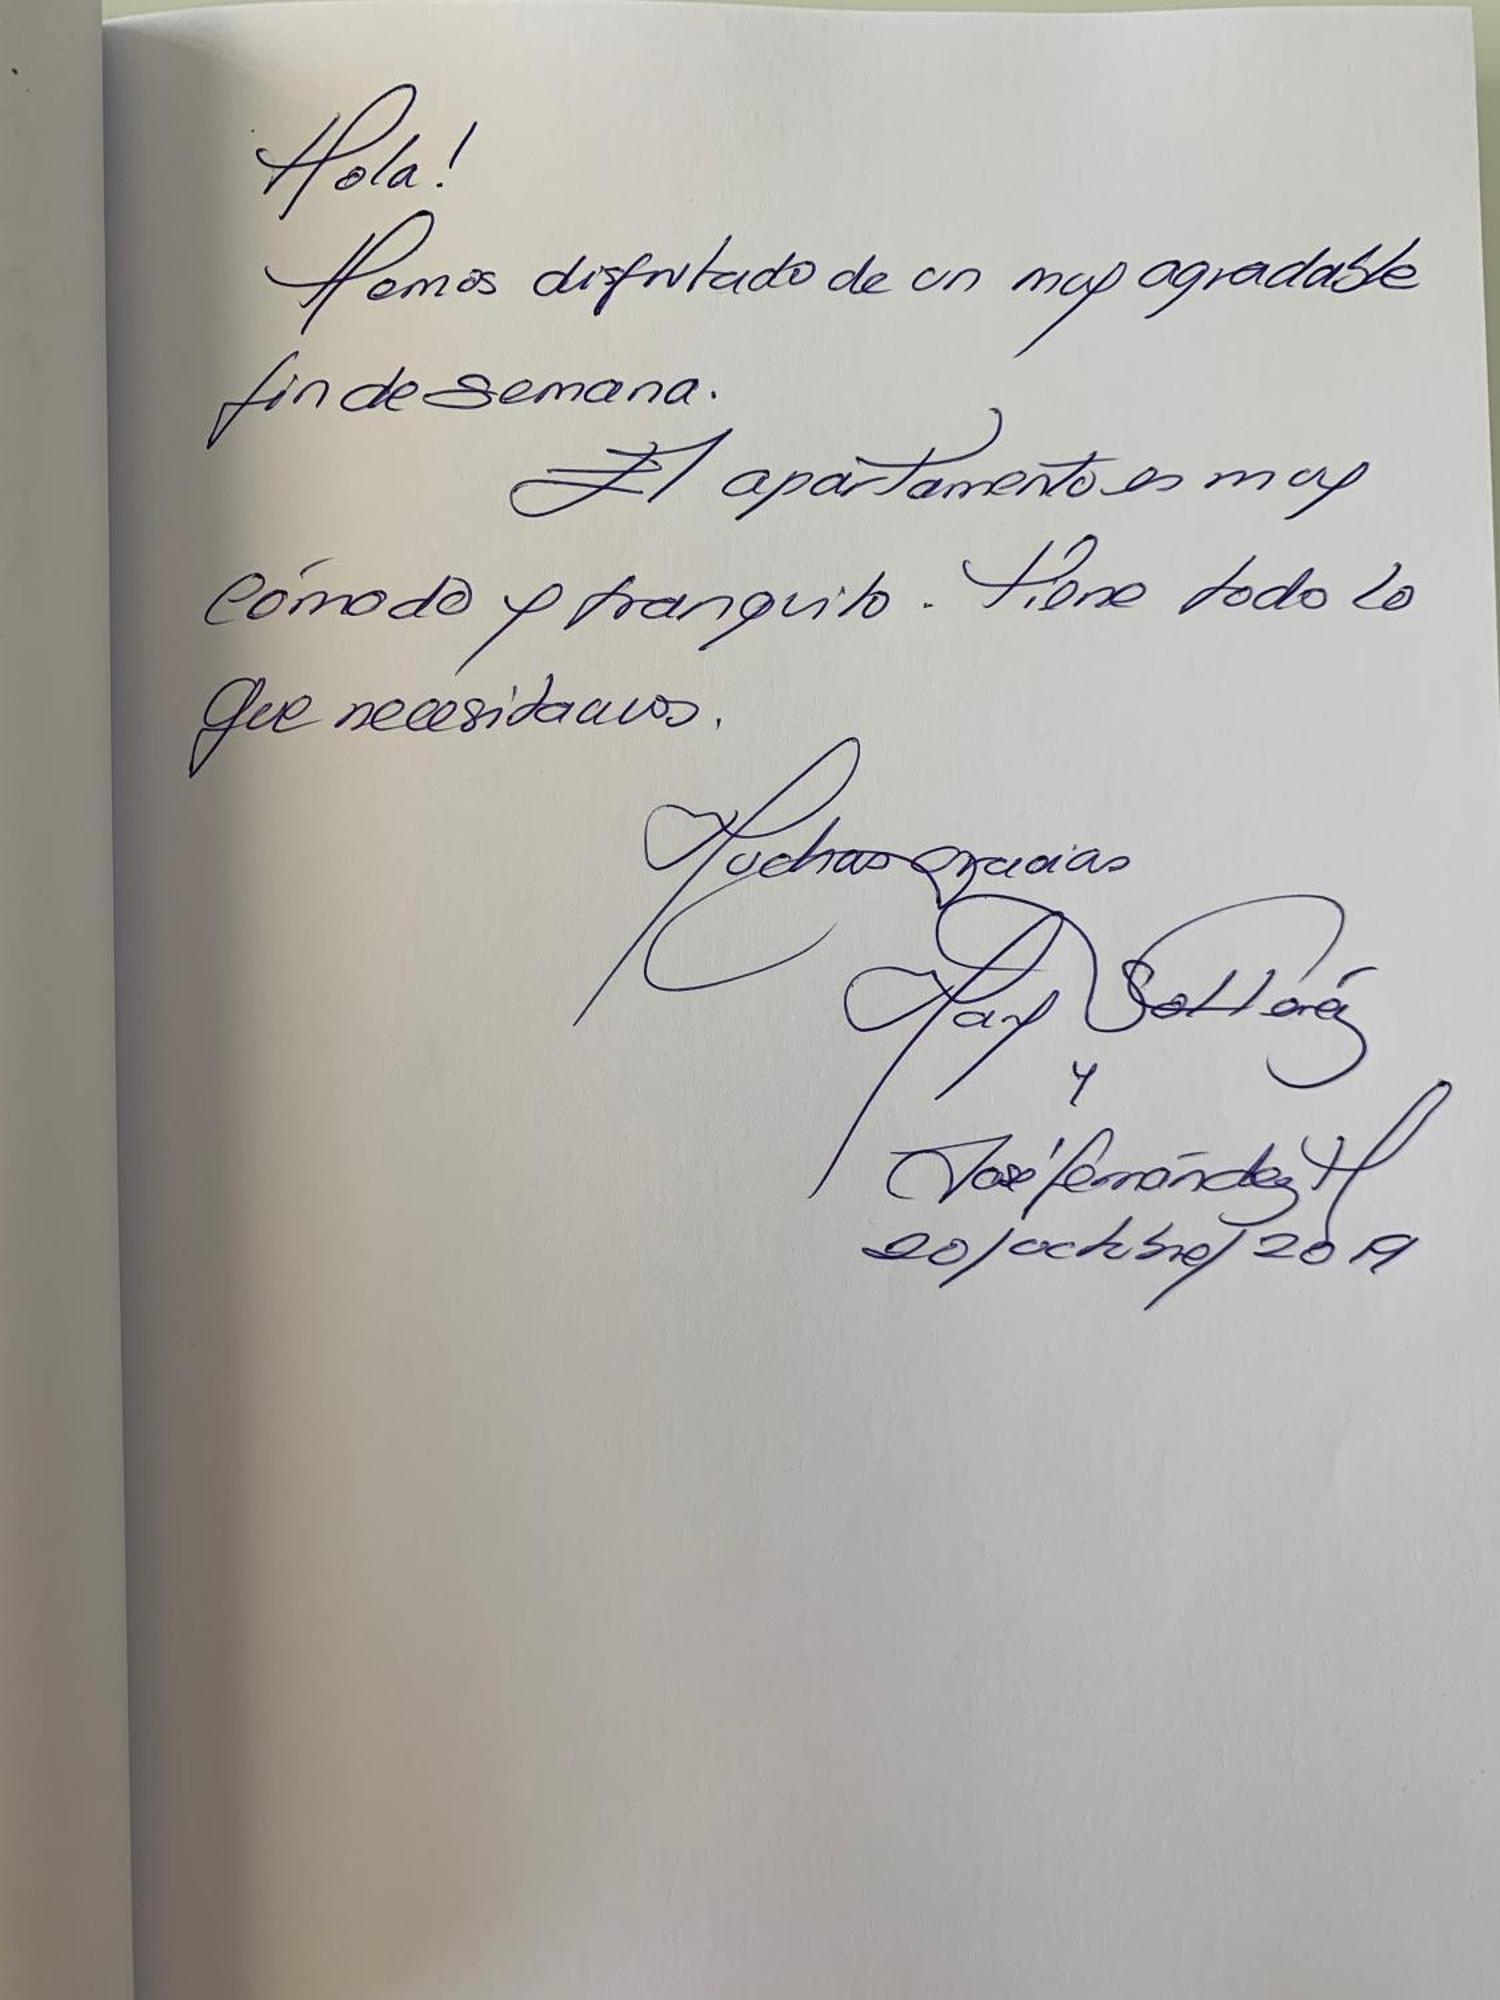 Hola!
Hemos disfrutado de un muy agradable
fin de semana.
El apartamento es muy
cómodo y tranquilo. Tiene todo lo
que necesitamos.
Muchas gracias
May
y
José Fernández M
20/octubre/2019